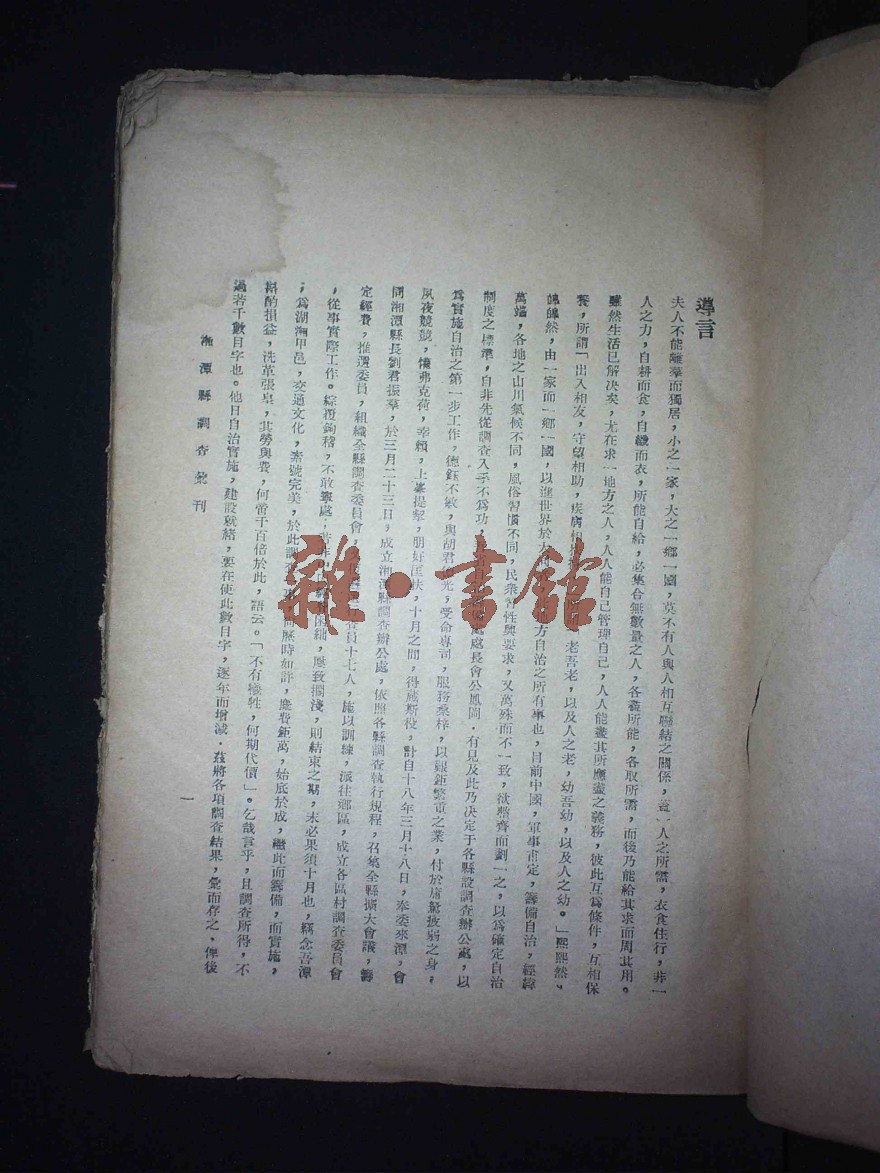 導言
夫人不能離羣而獨居，小之一家，大之一鄉一國，莫不有人與人相互聯結之關係，蓋一人之所需，衣食住行，非一
人之力，自耕而食，自織而衣，所能自給，必集合無數量之人，各義所能，各取所需，而後乃能給其求而周其用。
雖然生活已解決矣，尤在求一地方之人，人人能自己管理自己，人人能盡其所應盡之義務，彼此互爲條件，互相保
養，所謂「出入相友，守望相助，疾病相扶 老吾老，以及人之老，幼吾幼，以及人之幼。」熙熙然，
皥皥然，由一家而一鄉一國，以進世界於大 方自治之所有事也，目前中國，軍事甫定，籌備自治，經緯
萬端，各地之山川氣候不同，風俗習慣不同，民衆習性與要求，又萬殊而不一致，欲整齊而劃一之，以爲確定自治
制度之標準，自非先從調查入手不爲功， 處處長會公鳳岡．有見及此乃決定于各縣設調查辦公處，以
爲實施自治之第一步工作，德鈺不敏，與胡君 光，受命專司，服務桑梓，以艱鉅繁重之業，付於庸駑疲弱之身，
夙夜兢兢，懼弗克荷，幸賴，上峯提挈，朋好匡扶，十月之間，得蕆斯役，計自十八年三月十八日，奉委來潭，會
同湘潭縣長劉君振羣，於三月二十三日，成立湘潭縣調查辦公處，依照各縣調查執行規程，召集全縣擴大會議，籌
定經費，推選委員，組織全縣調查委員會， 查員十七人，施以訓練，派往鄉區，成立各區村調查委員會
，從事實際工作。綜覆鈎稽，不敢 處，若 屢致擱淺，則結束之期，未必果須十月也，竊念吾潭
，爲湖湘甲邑，交通文化，素號完美，於此調查 時如許，糜費鉅萬，始底於成，繼此而籌備，而實施，
斟酌損益，洗革張皇，其勞與費，何啻千百倍於此，語云。「不有犧牲，何期代價」。乞哉言乎，且調查所得，不
過若干數目字也。他日自治實施，建設就緒，要在使此數目字，逐年而增減．茲將各項調查結果，彙而存之，俾後
湘潭縣調查彙刊
一
雜·書館